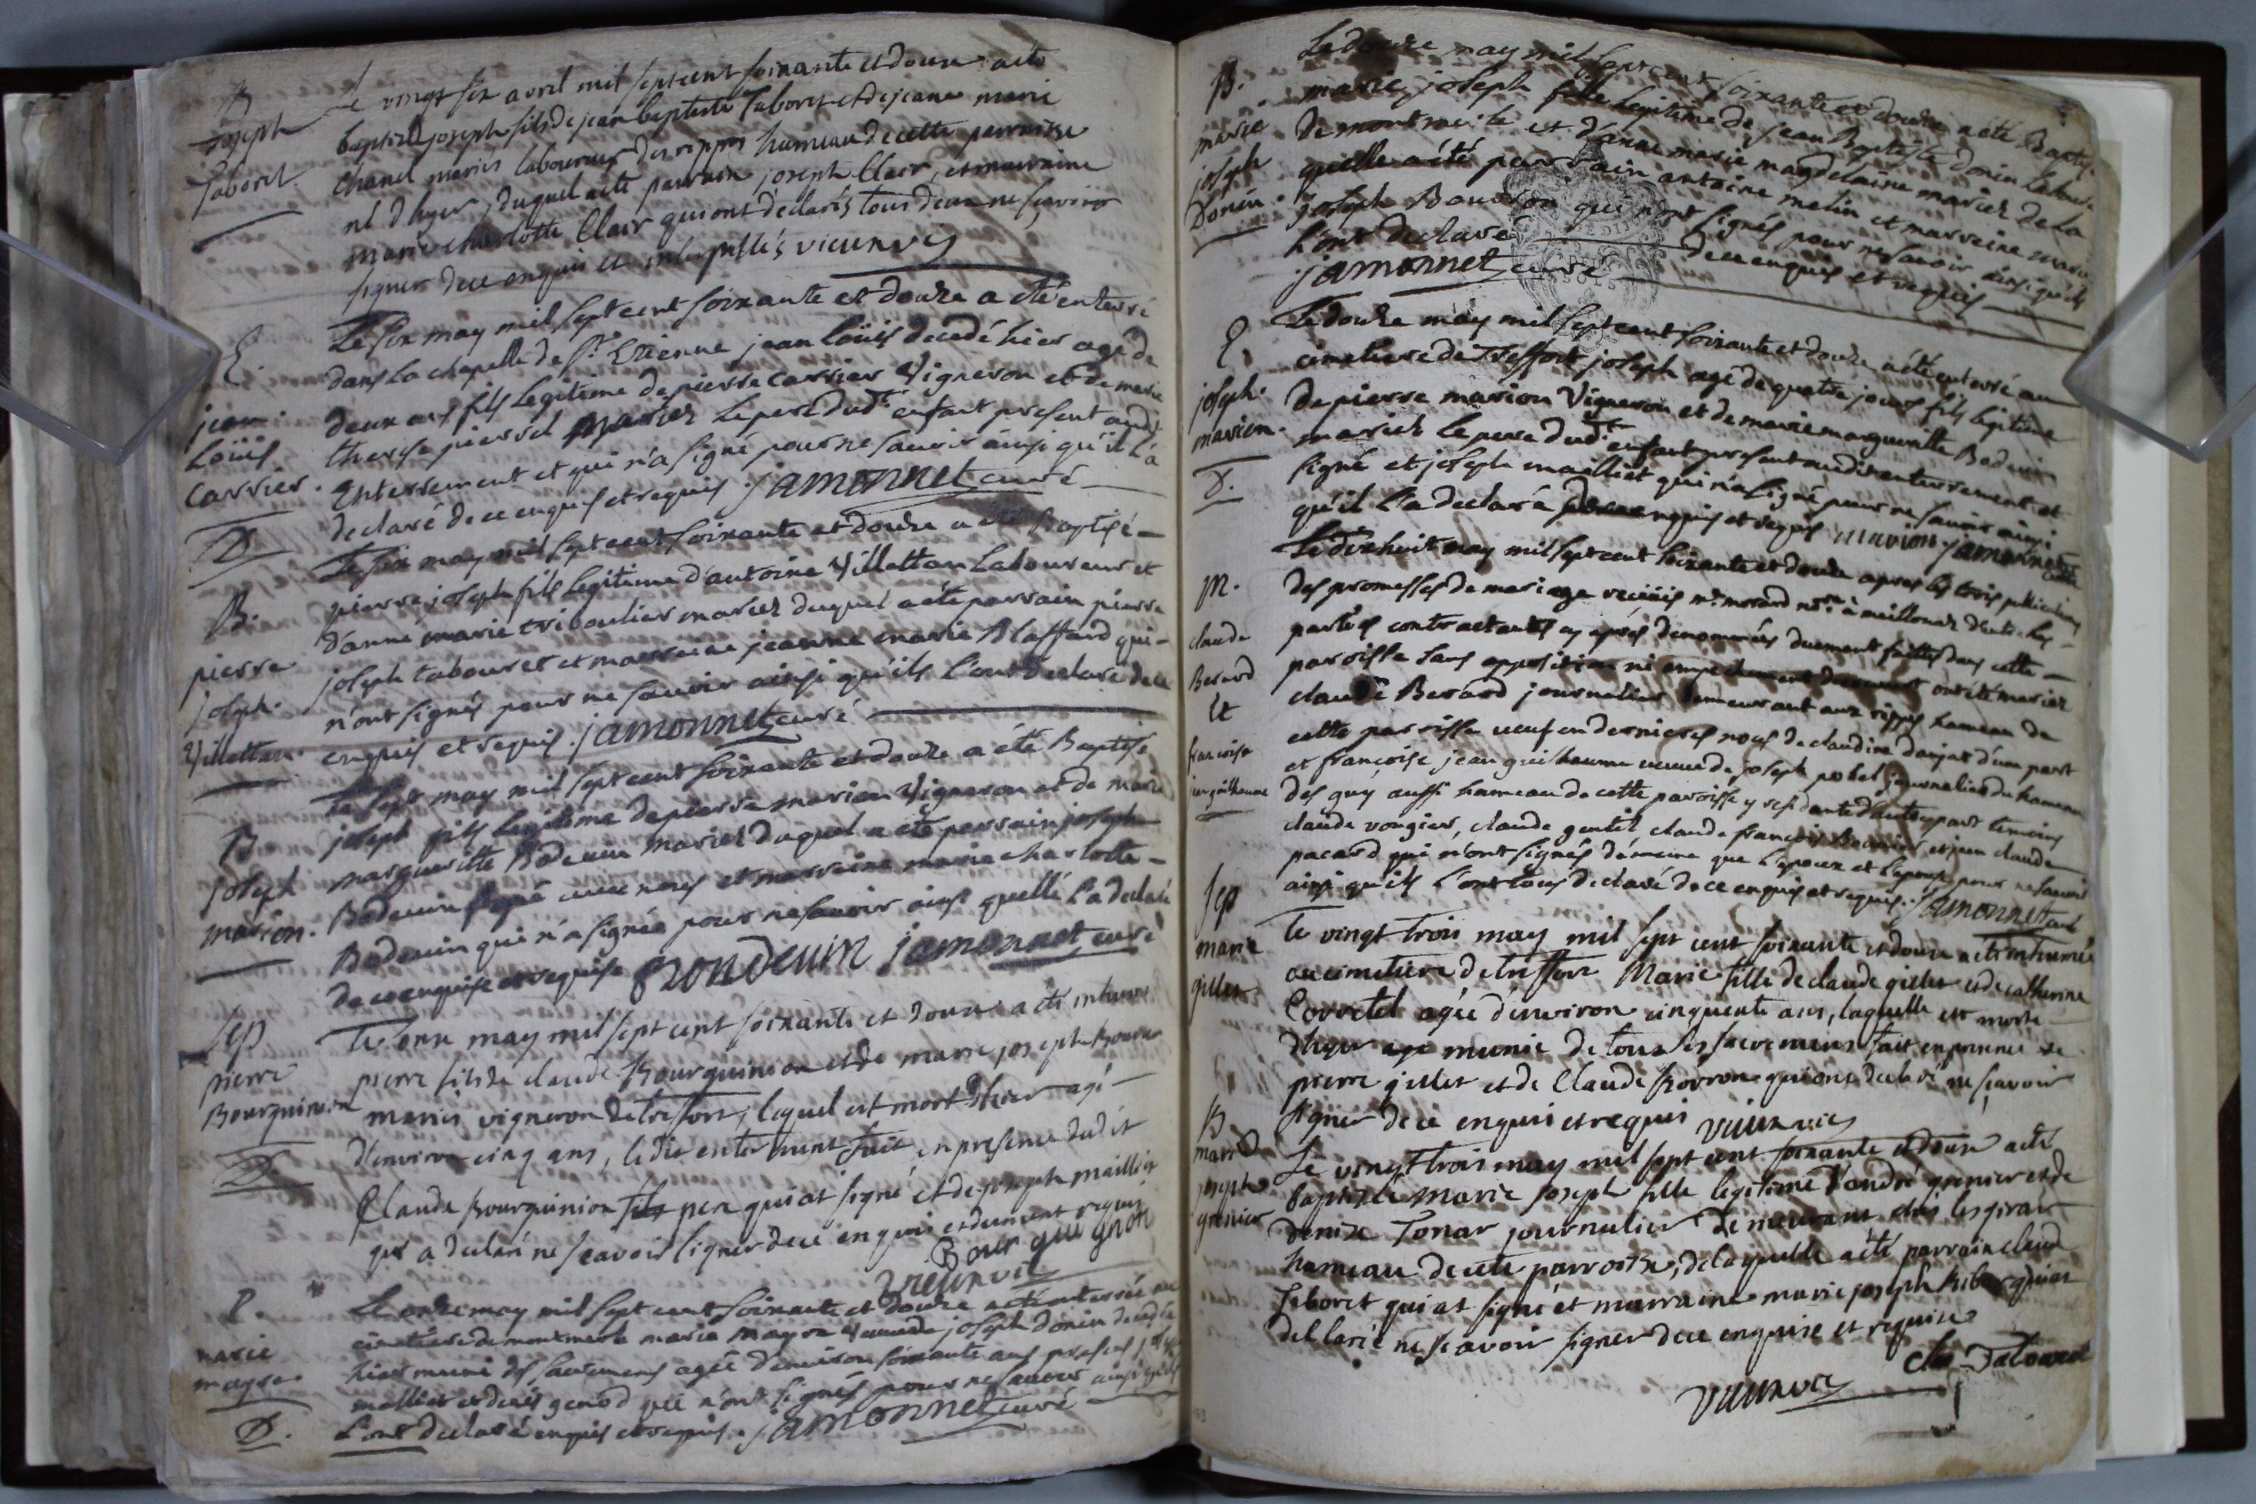 B
joseph
Taboret.
Le vingt six avril mil sept cent soixante et douze a eté
baptizé joseph fils de jean baptiste Taboret et de jeane marie
Chanel mariés laboureur des rippes hameau de cette parroisse
né d'hyer, duquel a eté parrain joseph Clair, et marraine
marie charlotte Clair qui ont déclarés tous deux ne sçavoir
signer de ce enquis et interpellés vieunvis
E.
jean.
Loüis
Carrier.
D
Le six may mil sept cent soixante et douze a été enterré
dans la chapelle de St. Etienne jean Loüis decedé hier agé de
deux ans fils legitime de pierre carrier Vigneron et de marie
therese pierrel mariez le pere dudt. enfant present audt
enterrement et qui n'a signé pour ne savoir ainsi qu'il l'a
declaré de ce enquis et requis. jamonnet curé
B.
pierre
joseph.
Villettan.
Le six may mil sept cent soixante et douze a été Baptisé
pierre joseph fils legitime d'antoine Villettan Laboureur et
d'anne marie triboulier mariez duquel a été parrain pierre
joseph tabouret et marraine jeanne marie Blaffard qui
n'ont signés pour ne savoir ainsi qu'ils l'ont declaré de ce
enquis et requis. jamonnet curé
B
joseph
marion.
Le sept may mil sept cent soixante et douze a été Baptisé
joseph fils legitime de pierre marion Vigneron et de marie
margueritte Bodevin mariez duquel a été parrain joseph
Bodevin signé avec nous et marraine marie charlotte
Bodevin qui n'a signée pour ne savoir ainsi quelle l'a declaré
de ce enquise et requise Bondevin jamonnet curé
Sep
pierre
Bourguinion
D
Le onze may mil sept cent soixante et douze a eté inhumé
pierre fils de claude Bourguinion et de marie joseph Bouvron
mariés vigneron de tresfort, lequel est mort d'hier agé
d'environ cinq ans, ledit enterrement fait en presence dudit
Claude Bourguinion pere qui at signé et de joseph maillier
qui a declaré ne sçavoir signer de ce enquis et duement requis
Bour gui gnon
vieunvis
E.
marie
mayre
D.
Le onze may mil sept cent soixante et douze a été enterrée au
cimetiere de montmerle marie mayre Veuve de joseph donin decedée
hier munie des sacremens agée d'environ soixante ans presens joseph
mallier et denis genod qui n'ont signés pour ne savoir ainsi qu'ils
l'ont declaré enquis et requis. jamonnet curé
B.
marie
joseph
Donin.
Le douze may mil sept cent soixante et douze a été Baptisé
marie joseph fille legitime de jean Baptiste donin Laboureur
de montmerle et d'anne marie magdelaine mariez de la
quelle a été parrain antoine melin et marreine marie
joseph Bouvron qui n'ont signés pour ne savoir ainsi qu'ils
l'ont declaré de ce enquis et requis
jamonnet curé
E.
joseph.
marion.
D.
Le douze may mil sept cent soixante et douze a été enterré au
cimetiere de Treffort joseph agé de quatre jours fils legitime
de pierre marion Vigneron et de marie marguerite Bodevin
mariez le pere dudt. enfant present audit enterrement et
signé et joseph mailliet qui n'a signé pour ne savoir ainsi
qu'il l'a declaré de ce enquis et requis marion jamonnet curé
M.
claude
Berard
Et
francoise
jeanguilhaume
Le dixhuit may mil sept cent soixante et douze apres les trois publications
des promesses de mariage reçüës me. morand nore. à meillonaz d'entre les
parties contractantes cy aprés denommées duement faittes dans cette
paroisse sans opposition ni empechement ont été mariez
claude Berard journalier demeurant aux rippes hameau de
cette paroisse veuf en dernieres noces de claudine danjat d'une part
et françoise jeanguilhaume veuve de joseph pobel journalier du hameau
des guy aussi hameau de cette paroisse y residante d'autre part temoins
claude vongier, claude gentil claude françois et jean claude
pacard qui n'ont signés de meme que l'epoux et l'epouse pour ne savoir
ainsi qu'ils l'ont tous declaré de ce enquis et requis. jamonnet curé
Sep
marie
gillet
Le vingt trois may mil sept cent soixante et douze a eté inhumée
au cimetière de tresfort Marie fille de claude gillet et de catherine
Corretel agée d'environ cinquante ans, laquelle est morte
d'hyer munie de tous les sacrements fait en presence de
pierre gillet et de Claude Bovron qui ont declaré ne sçavoir
signer de ce enquis et requis vieunvis
B
marie
joseph
grenier
Le vingt trois may mil sept cent soixante et douze a eté
baptisée marie joseph fille legitime d'andré grenier et de
denise Tonar journalier demeurant chés les girar
hameau de cette parroisse, de laquelle a eté parrain claud
Taboret qui at signé et marraine marie joseph
declaré ne sçavoir signer de ce enquise et requise
cla Tabouret
vieunvis